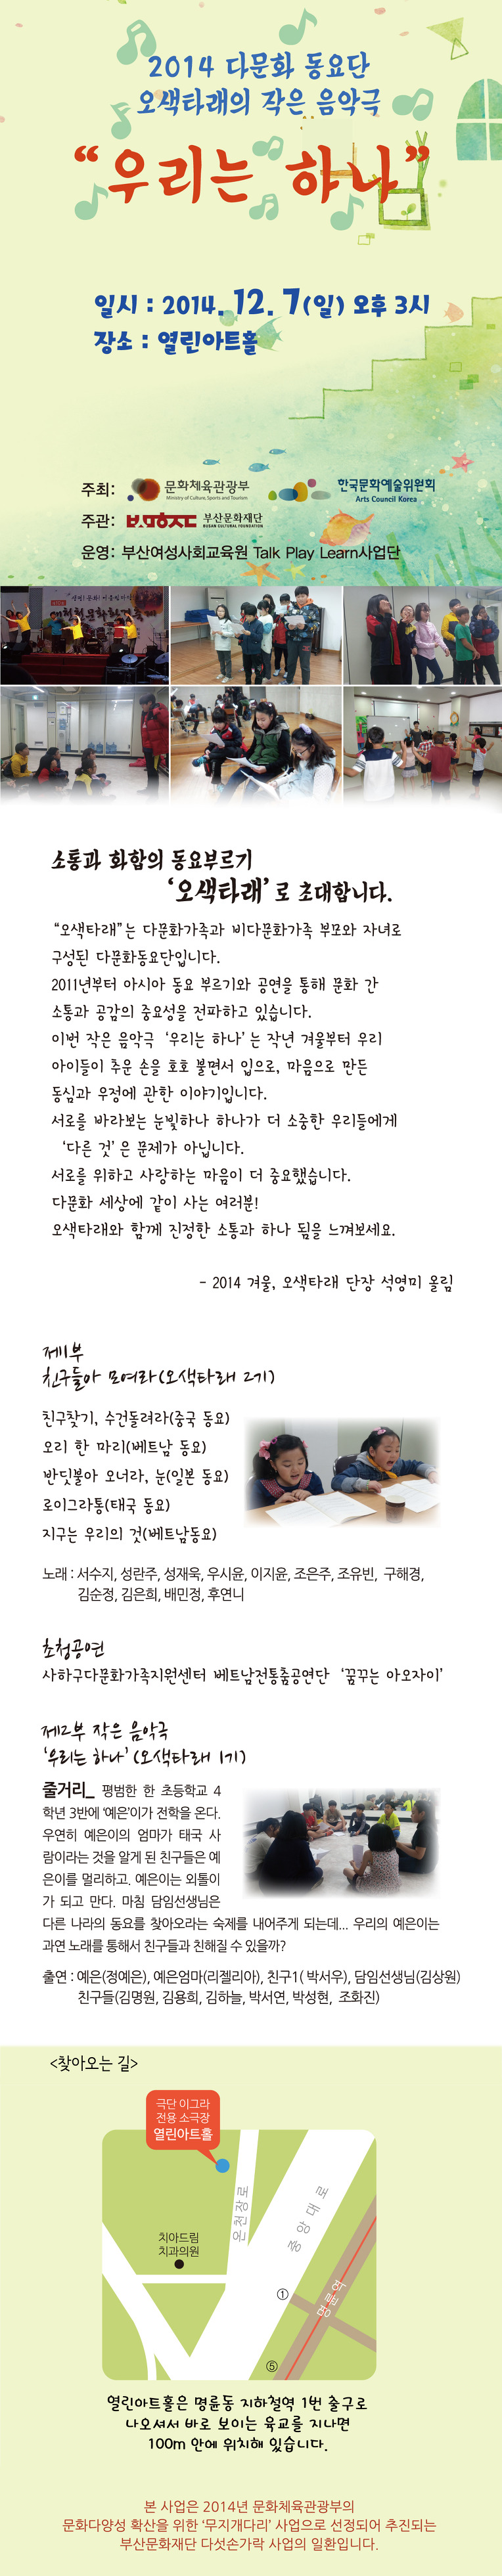 2014 다문화 동요단
오색타래의 작은 음악극
“우리는 하나”
일시 : 2014. 12. 7(일) 오후 3시
장소 : 열린아트홀
주최: 문화체육관광부
Ministry of Culture, Sports and Tourism
한국문화예술위원회
Arts Council Korea
주관: 부산문화재단
BUSAN CULTURAL FOUNDATION
운영: 부산여성사회교육원 Talk Play Learn사업단
소통과 화합의 동요부르기
‘오색타래’로 초대합니다.
“오색타래”는 다문화가족과 비다문화가족 부모와 자녀로
구성된 다문화동요단입니다.
2011년부터 아시아 동요 부르기와 공연을 통해 문화 간
소통과 공감의 중요성을 전파하고 있습니다.
이번 작은 음악극 ‘우리는 하나’는 작년 겨울부터 우리
아이들이 추운 손을 호호 불면서 입으로, 마음으로 만든
동심과 우정에 관한 이야기입니다.
서로를 바라보는 눈빛하나 하나가 더 소중한 우리들에게
‘다른 것’은 문제가 아닙니다.
서로를 위하고 사랑하는 마음이 더 중요했습니다.
다문화 세상에 같이 사는 여러분!
오색타래와 함께 진정한 소통과 하나 됨을 느껴보세요.
- 2014 겨울, 오색타래 단장 석영미 올림
제1부
친구들아 모여라(오색타래 2기)
친구찾기, 수건돌려라(중국 동요)
오리 한 마리(베트남 동요)
반딧불아 오너라, 눈(일본 동요)
로이그라통(태국 동요)
지구는 우리의 것(베트남동요)
노래 : 서수지, 성란주, 성재욱, 우시윤, 이지윤, 조은주, 조유빈, 구해경,
김순정, 김은희, 배민정, 후연니
초청공연
사하구다문화가족지원센터 베트남전통춤공연단 ‘꿈꾸는 아오자이’
제2부 작은 음악극
‘우리는 하나’(오색타래 1기)
줄거리_ 평범한 한 초등학교 4
학년 3반에 ‘예은’이가 전학을 온다.
우연히 예은이의 엄마가 태국 사
람이라는 것을 알게 된 친구들은 예
은이를 멀리하고. 예은이는 외톨이
가 되고 만다. 마침 담임선생님은
다른 나라의 동요를 찾아오라는 숙제를 내어주게 되는데... 우리의 예은이는
과연 노래를 통해서 친구들과 친해질 수 있을까?
출연 : 예은(정예은), 예은엄마(리젤리아), 친구1( 박서우), 담임선생님(김상원)
친구들(김명원, 김용희, 김하늘, 박서연, 박성현, 조화진)
<찾아오는 길>
극단 이그라
전용 소극장
열린아트홀
온천장로
중앙대로
치아드림
치과의원
①
명륜역
⑤
열린아트홀은 명륜동 지하철역 1번 출구로
나오셔서 바로 보이는 육교를 지나면
100m 안에 위치해 있습니다.
본 사업은 2014년 문화체육관광부의
문화다양성 확산을 위한 ‘무지개다리’ 사업으로 선정되어 추진되는
부산문화재단 다섯손가락 사업의 일환입니다.